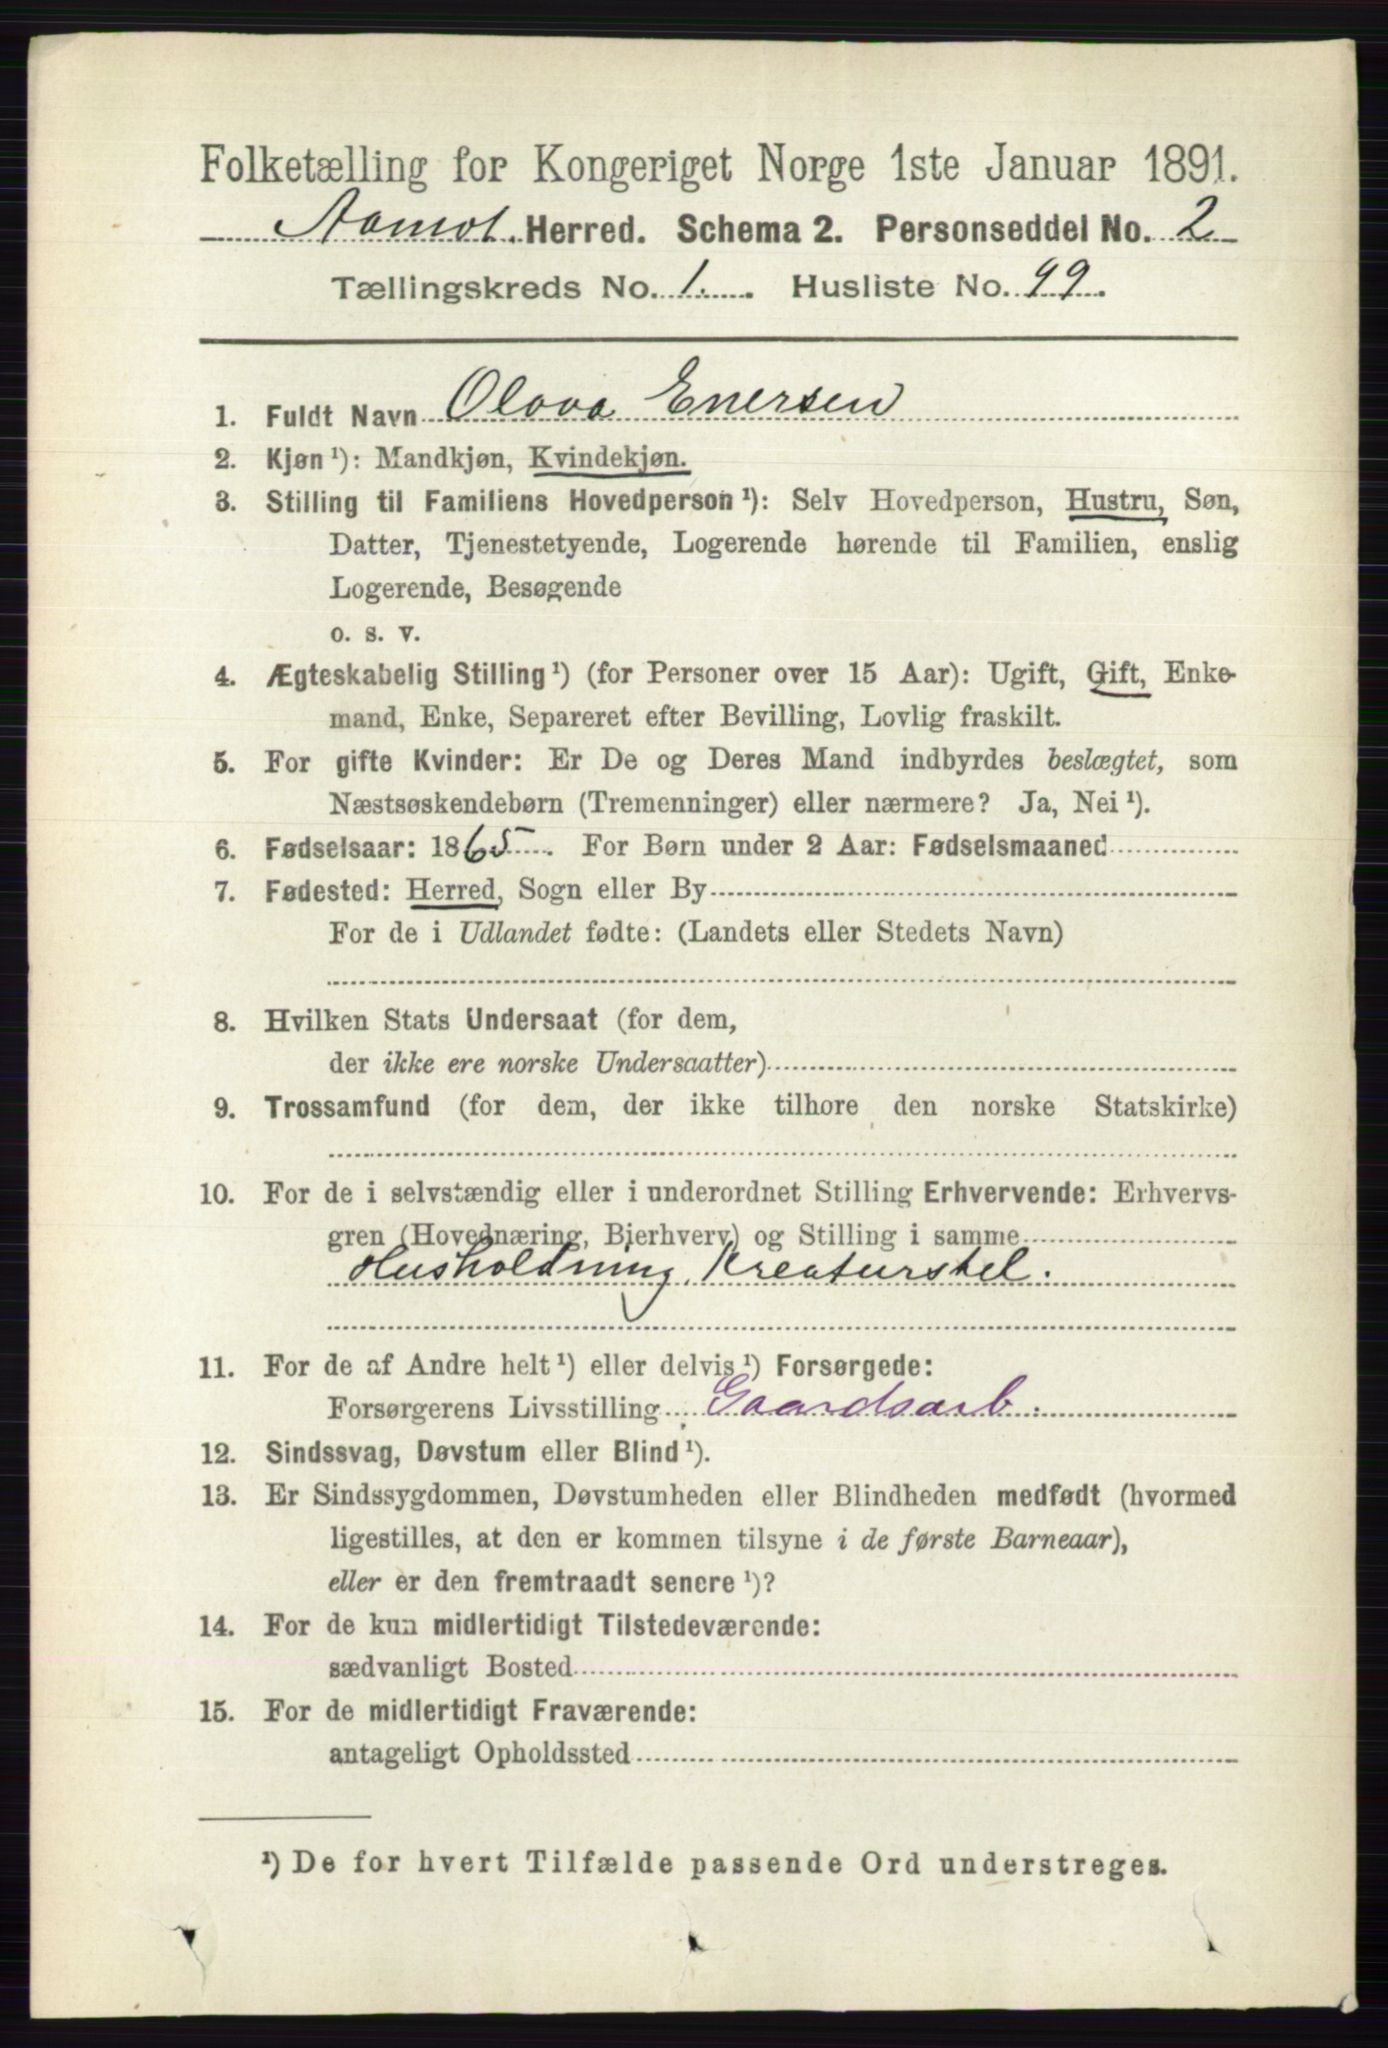 Folketælling for Kongeriget Norge 1ste Januar 1891.
Aamot Herred. Schema 2. Personseddel No. 2
Tællingskreds No. 1. Husliste No. 99.
1. Fuldt Navn Olava Enersen
2. Kjøn ¹): Mandkjøn, Kvindekjøn.
3. Stilling til Familiens Hovedperson ¹): Selv Hovedperson, Hustru, Søn,
Datter, Tjenestetyende, Logerende hørende til Familien, enslig
Logerende, Besøgende
o. s. v.
4. Ægteskabelig Stilling ¹) (for Personer over 15 Aar): Ugift, Gift, Enke-
mand, Enke, Separeret efter Bevilling, Lovlig fraskilt.
5. For gifte Kvinder: Er De og Deres Mand indbyrdes beslægtet, som
Næstsøskendebørn (Tremenninger) eller nærmere? Ja, Nei ¹).
6. Fødselsaar: 1865. For Børn under 2 Aar: Fødselsmaaned
7. Fødested: Herred, Sogn eller By
For de i Udlandet fødte: (Landets eller Stedets Navn)
8. Hvilken Stats Undersaat (for dem,
der ikke ere norske Undersaatter)
9. Trossamfund (for dem, der ikke tilhøre den norske Statskirke)
10. For de i selvstændig eller i underordnet Stilling Erhvervende: Erhvervs-
gren (Hovednæring, Bierhverv) og Stilling i samme
Husholdning, Kreaturstel.
11. For de af Andre helt ¹) eller delvis ¹) Forsørgede:
Forsørgerens Livsstilling Gaardsarb.
12. Sindssvag, Døvstum eller Blind ¹).
13. Er Sindssygdommen, Døvstumheden eller Blindheden medfødt (hvormed
ligestilles, at den er kommen tilsyne i de første Barneaar),
eller er den fremtraadt senere ¹)?
14. For de kun midlertidigt Tilstedeværende:
sædvanligt Bosted
15. For de midlertidigt Fraværende:
antageligt Opholdssted
¹) De for hvert Tilfælde passende Ord understreges.